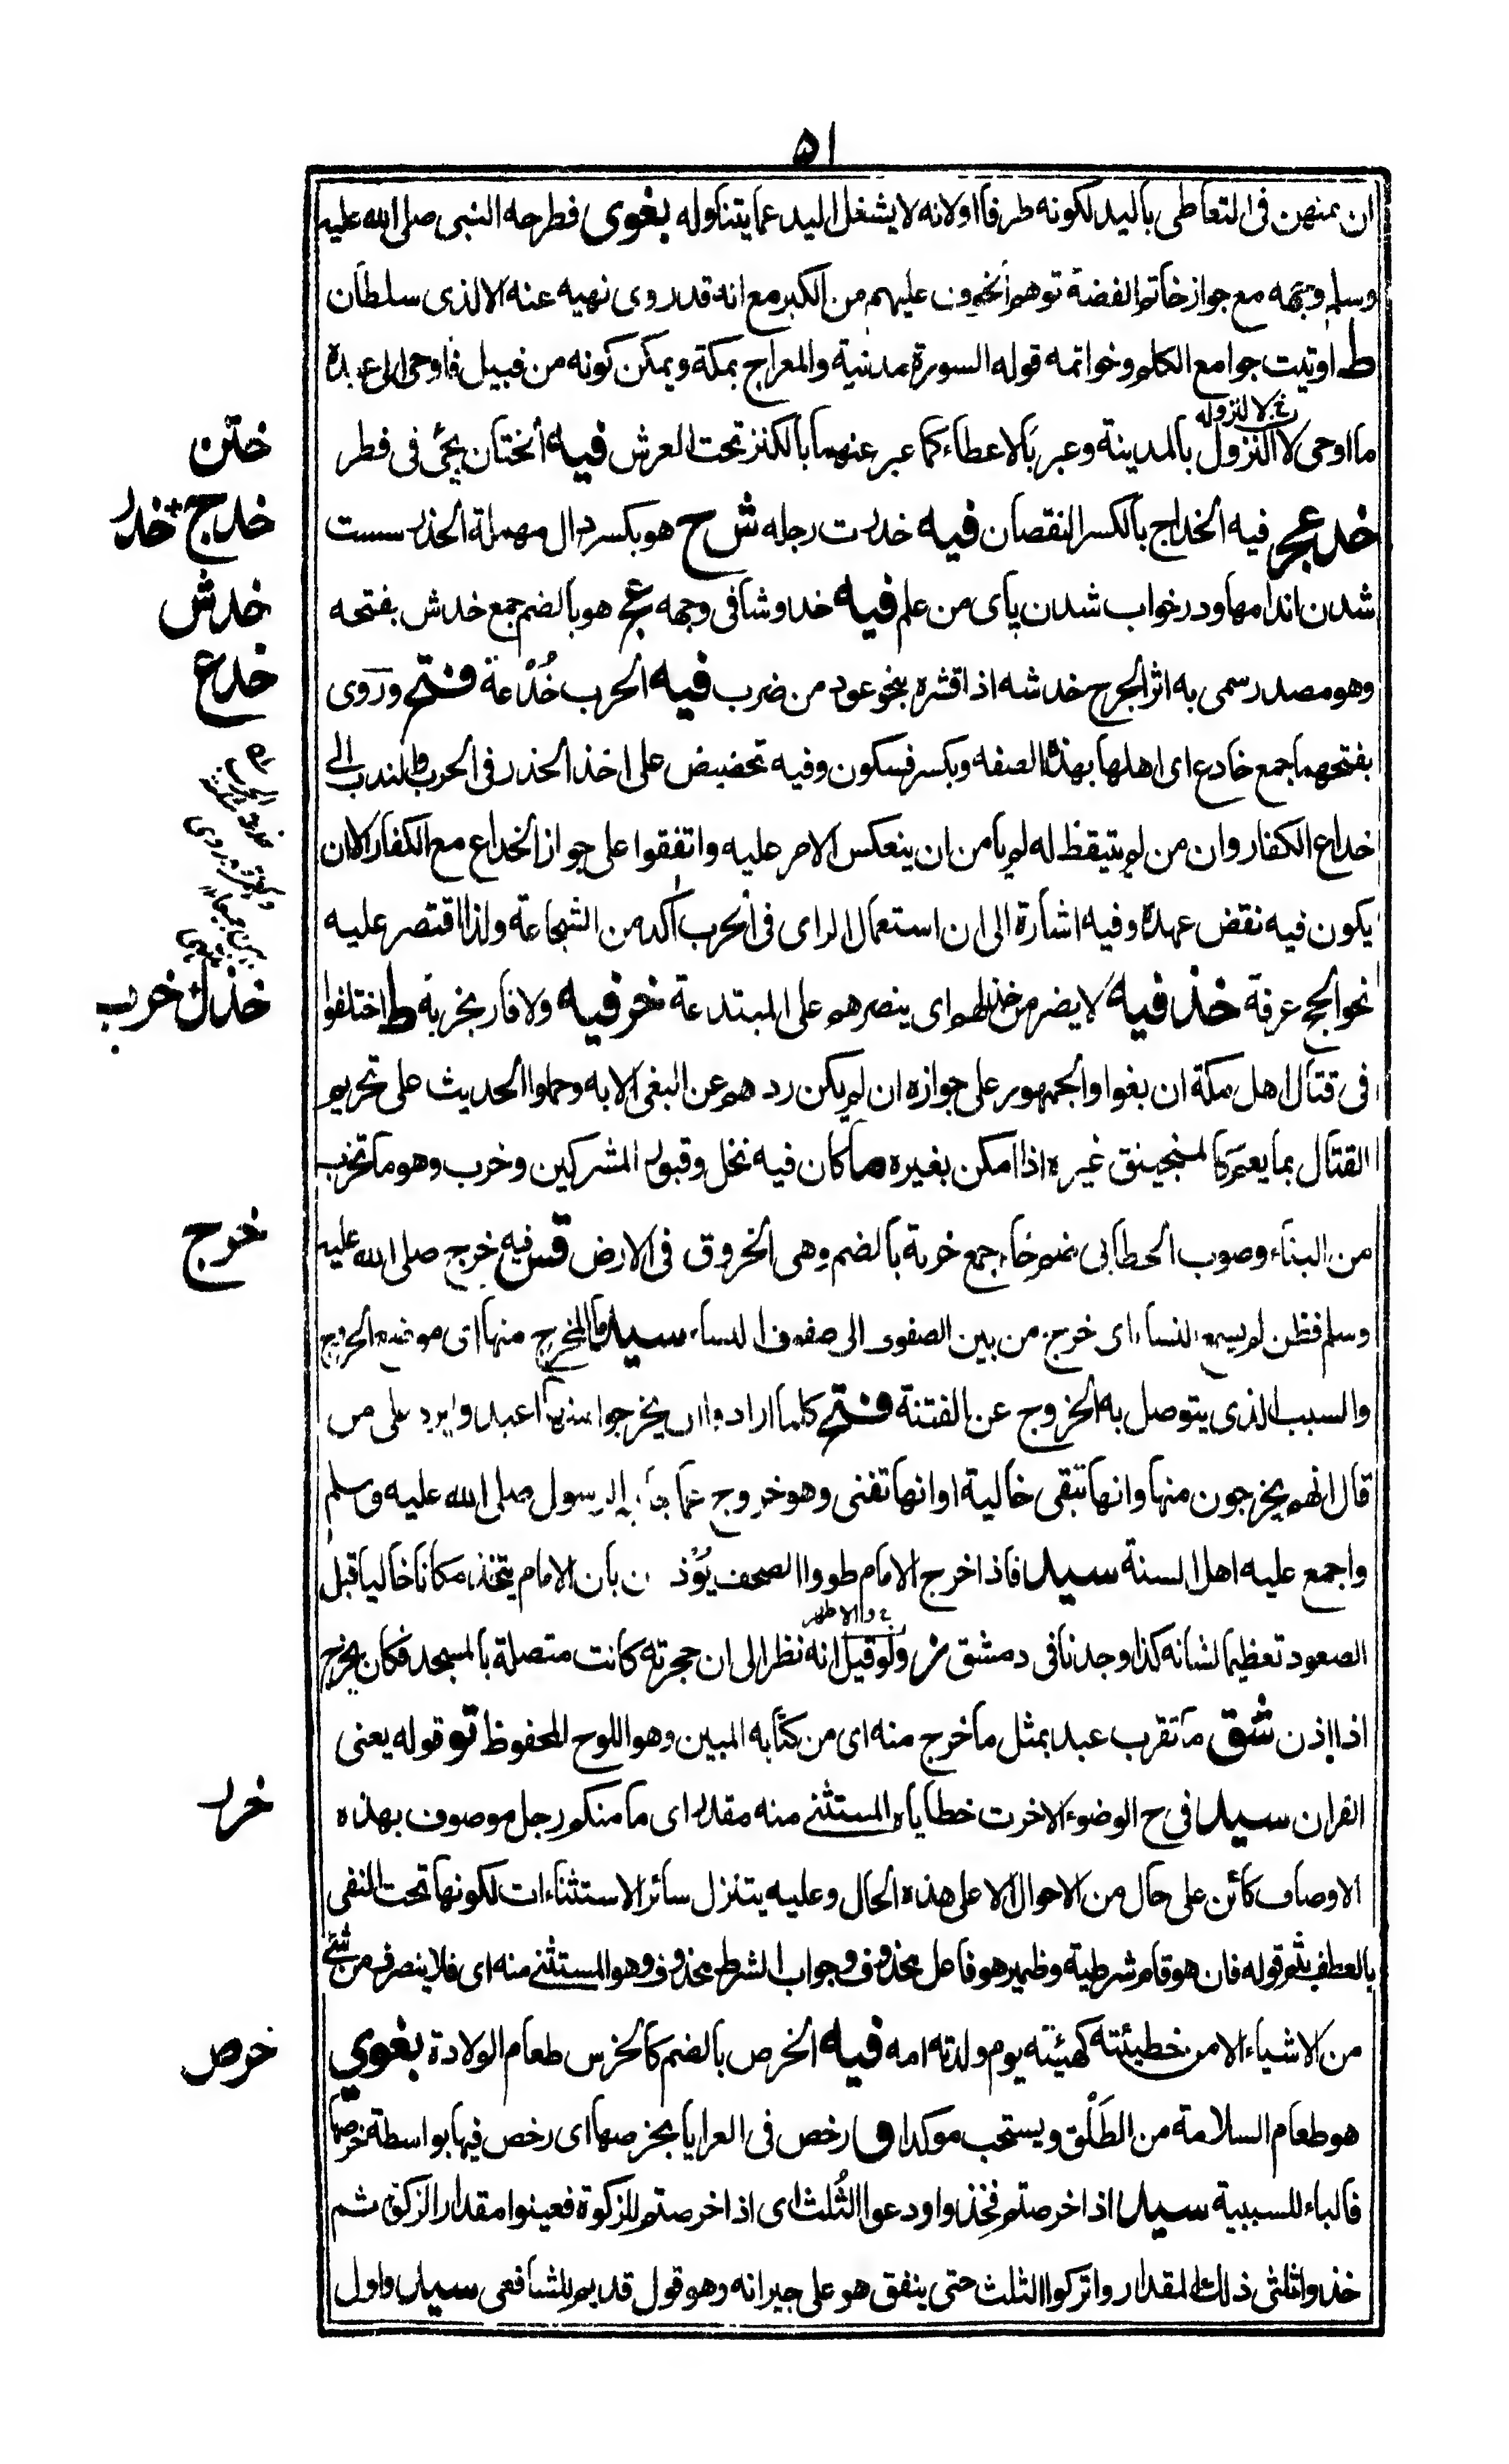 ۵۱
ان يمنهن فى التعاطى باليد لكونه طرفا اولانه لا يشغل اليد عما يتناوله بغوى فطرحه النبى صلى الله عليه
وسلم وجهه مع جواز خاتم الفضة توهم عليهم من الكبر مع انه قد روى نهيه عنه الا لذى سلطان
ط اوتيت جوامع الكلم وخواتمه قوله السورة مدنية والمعراج بمكة ويمكن كونه من قبيل فاوحى الى عبده
خ لا لنزوله
ما اوحى لا النزول بالمدينة وعبر بالاعطاء كما عبر عنهما بالكنز تحت العرش فيه الختان يجئ فى فطر
ختن
خدج فيه الخداج بالكسر النقصان فيه خدرت رجله ش ح هو بكسر دال مهملة الخدر سست
خدج خدر
شدن اندامها ودر خواب شدن پاى من علم فيه خدوشا فى وجهه هو بالضم جمع خدش بفتحه
خدش
وهو مصدر سمى به اثر الجرح خدشه اذا قشره بنحو عود من ضرب فيه الحرب خُدْعة فتح وروى
خدع
بفتحهما جمع خادع اى اهلها بهذه الصفه وبكسر فسكون وفيه تحضيض على اخذ الحذر فى الحرب والندب الى
خداع الكفار وان من لم يتيقظ له لم يأمن ان ينعكس الامر عليه واتفقوا على جواز الخداع مع الكفار الا ان
يكون فيه نقض عهدة وفيه اشارة الى ان استعمال الراى فى الحرب اكد من الشجاعة ولذا اقتصر عليه
نحو الحج عرفة خذ فيه لا يضرهم من خذلهم اى ينصرهم على المبتدعة خر فيه ولا فار بخربة ط اختلفوا
خذل خرب
فى قتال اهل مكة ان بغوا والجمهور على جوازه ان لم يكن ردهم عن البغى الا به وحملوا الحديث على تحريم
القتال بما يعم كالمنجنيق غيره اذا امكن بغيره ما كان فيه نخل وقبور المشركين وخرب وهو ما تخرب
من البناء وصوب الخطابى بضم خاء جمع خربة بالضم وهى الخروق فى الارض قس فيه خرج صلى الله عليه
خرج
وسلم فظن لم يسمع النساء اى خرج من بين الصفوف الى صفوف النساء سيد ما المخرج منها اى موضع الخروج
والسبب الذى يتوصل به الخروج عن الفتنة فتح كلما ارادوا ان يخرجوا منها اعيدوا يرد على من
قال انهم يخرجون منها وانها تبقى خالية او انها تفنى وهو خروج عما جاء به الرسول صلى الله عليه وسلم
واجمع عليه اهل السنة سيد فاذا خرج الامام طووا الصحف يؤذن بان الامام يتخذ مكانا خاليا قبل
خ والاظهر
الصعود تعظيما لشانه كذا وجدنا فى دمشق ولو قيل انه نظر الى ان حجرته كانت متصلة بالمسجد فكان يخرج
اذا اذن شق ما تقرب عبد بمثل ما خرج منه اى من كتابه المبين وهو اللوح المحفوظ تو قوله يعنى
القران سيد فى ح الوضوء الا خرت خطاياه المستثنى منه مقدر اى ما منكم رجل موصوف بهذه
خرر
الاوصاف كائن على حال من الاحوال الا على هذه الحال وعليه يتنزل سائر الاستثناءات لكونها تحت النفى
بالعطف بثم قوله فان هو قام شرطية وظمير هو فاعل محذوف وجواب الشرط محذوف وهو المستثنى منه اى فلا ينصرف من شئ
من الاشياء الا من خطيئته كهيئته يوم ولدته امه فيه الخرص بالضم كالخرس طعام الولادة بغوي
خرص
هو طعام السلامة من الطَلْق ويستحب موكدا ق رخص فى العرايا بخرصها اى رخص فيها بواسطة خرصها
فالباء للسببية سيد اذا خرصتم فخذوا ودعوا الثُلث اى اذا خرصتم للزكوة فعينوا مقدار الزكوة ثم
خذوا ثلثى ذلك المقدار واتركوا الثلث حتى ينفق هو على جيرانه وهو قول قديم للشافعى سيد واول